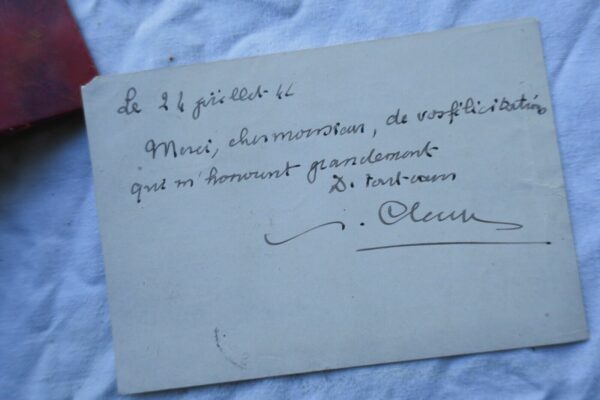 Le 24 juillet 44
Merci, cher monsieur, de vos félicitations
qui m'honorent grandement
D. tout cœur